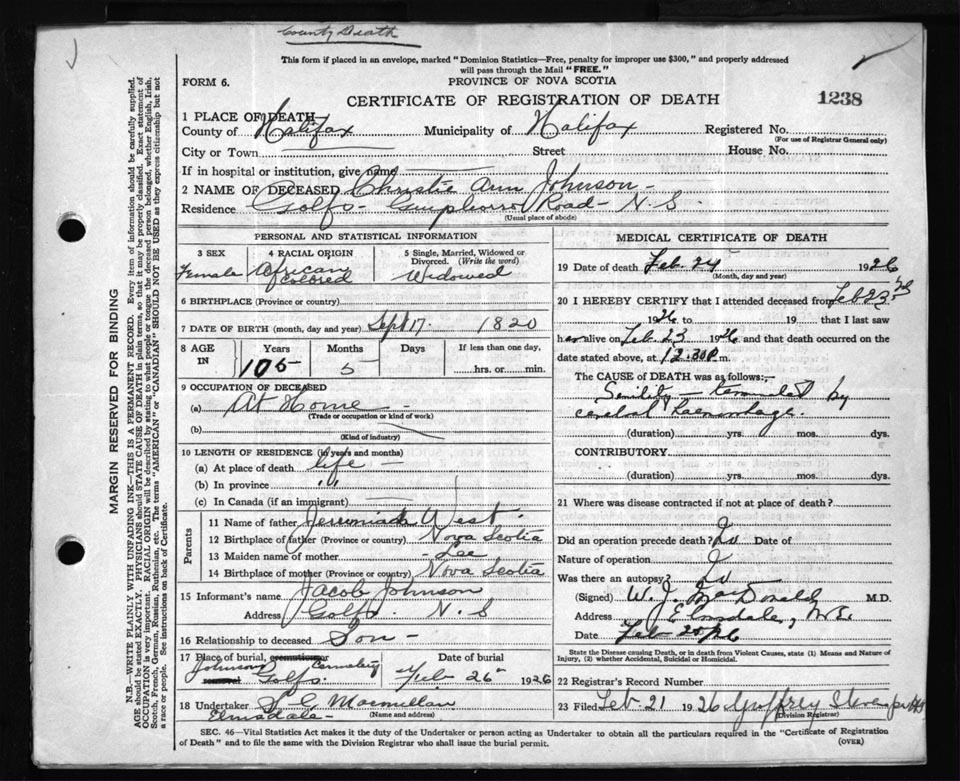 County Death
This form if placed in an envelope, marked "Dominion Statistics—Free, penalty for improper use $300," and properly addressed
will pass through the Mail "FREE."
FORM 6.
PROVINCE OF NOVA SCOTIA
CERTIFICATE OF REGISTRATION OF DEATH
1238
1 PLACE OF DEATH
County of Halifax Municipality of Halifax Registered No.
(For use of Registrar General only)
City or Town Street House No.
If in hospital or institution, give name
2 NAME OF DECEASED Christie Ann Johnson -
Residence Golfs - Road - N.S.
(Usual place of abode)
PERSONAL AND STATISTICAL INFORMATION
3 SEX Female
4 RACIAL ORIGIN African Colored
5 Single, Married, Widowed or Divorced. (Write the word) Widowed
6 BIRTHPLACE (Province or country)
7 DATE OF BIRTH (month, day and year) Sept 17. 1820
8 AGE IN Years Months Days If less than one day,
105 5 hrs. or min.
9 OCCUPATION OF DECEASED
(a) At Home -
(Trade or occupation or kind of work)
(b)
(Kind of industry)
10 LENGTH OF RESIDENCE (in years and months)
(a) At place of death life -
(b) In province " "
(c) In Canada (if an immigrant)
Parents
11 Name of father Jeremiah West.
12 Birthplace of father (Province or country) Nova Scotia
13 Maiden name of mother - Lee
14 Birthplace of mother (Province or country) Nova Scotia
15 Informant's name Jacob Johnson
Address Golfs. N.S
16 Relationship to deceased Son -
17 Place of burial, cremation or Date of burial
Johnson Cemetery Golfs. Feb 26" 1926
18 Undertaker Macmillan
Elmsdale - (Name and address)
MEDICAL CERTIFICATE OF DEATH
19 Date of death Feb. 24 1926
(Month, day and year)
20 I HEREBY CERTIFY that I attended deceased from Feb 23rd
1926 to 19 that I last saw
her alive on Feb 23 1926 and that death occurred on the
date stated above, at 12.30 P. m.
The CAUSE OF DEATH was as follows:—
Senility - terminated by
cerebral haemorrhage.
(duration) yrs. mos. dys.
CONTRIBUTORY
(duration) yrs. mos. dys.
21 Where was disease contracted if not at place of death?
Did an operation precede death? No Date of
Nature of operation
Was there an autopsy? No
(Signed) W. J. MacDonald M.D.
Address Elmsdale, N.S.
Date Feb
State the Disease causing Death, or in death from Violent Causes, state (1) Means and Nature of
Injury, (2) whether Accidental, Suicidal or Homicidal.
22 Registrar's Record Number
23 Filed Feb 21 1926
(Division Registrar)
SEC. 46—Vital Statistics Act makes it the duty of the Undertaker or person acting as Undertaker to obtain all the particulars required in the "Certificate of Registration
of Death" and to file the same with the Division Registrar who shall issue the burial permit.
(OVER)
MARGIN RESERVED FOR BINDING
N.B.—WRITE PLAINLY WITH UNFADING INK—THIS IS A PERMANENT RECORD. Every item of information should be carefully supplied.
AGE should be stated EXACTLY. PHYSICIANS should STATE CAUSE OF DEATH in plain terms, so that it may be properly classified. Exact statement of
OCCUPATION is very important. RACIAL ORIGIN will be described by stating to what people or tongue the deceased person belonged, whether English, Irish,
Scotch, French, German, Russian, Ruthenian, etc. The terms "AMERICAN" or "CANADIAN" SHOULD NOT BE USED as they express citizenship but not
a race or people. See instructions on back of Certificate.